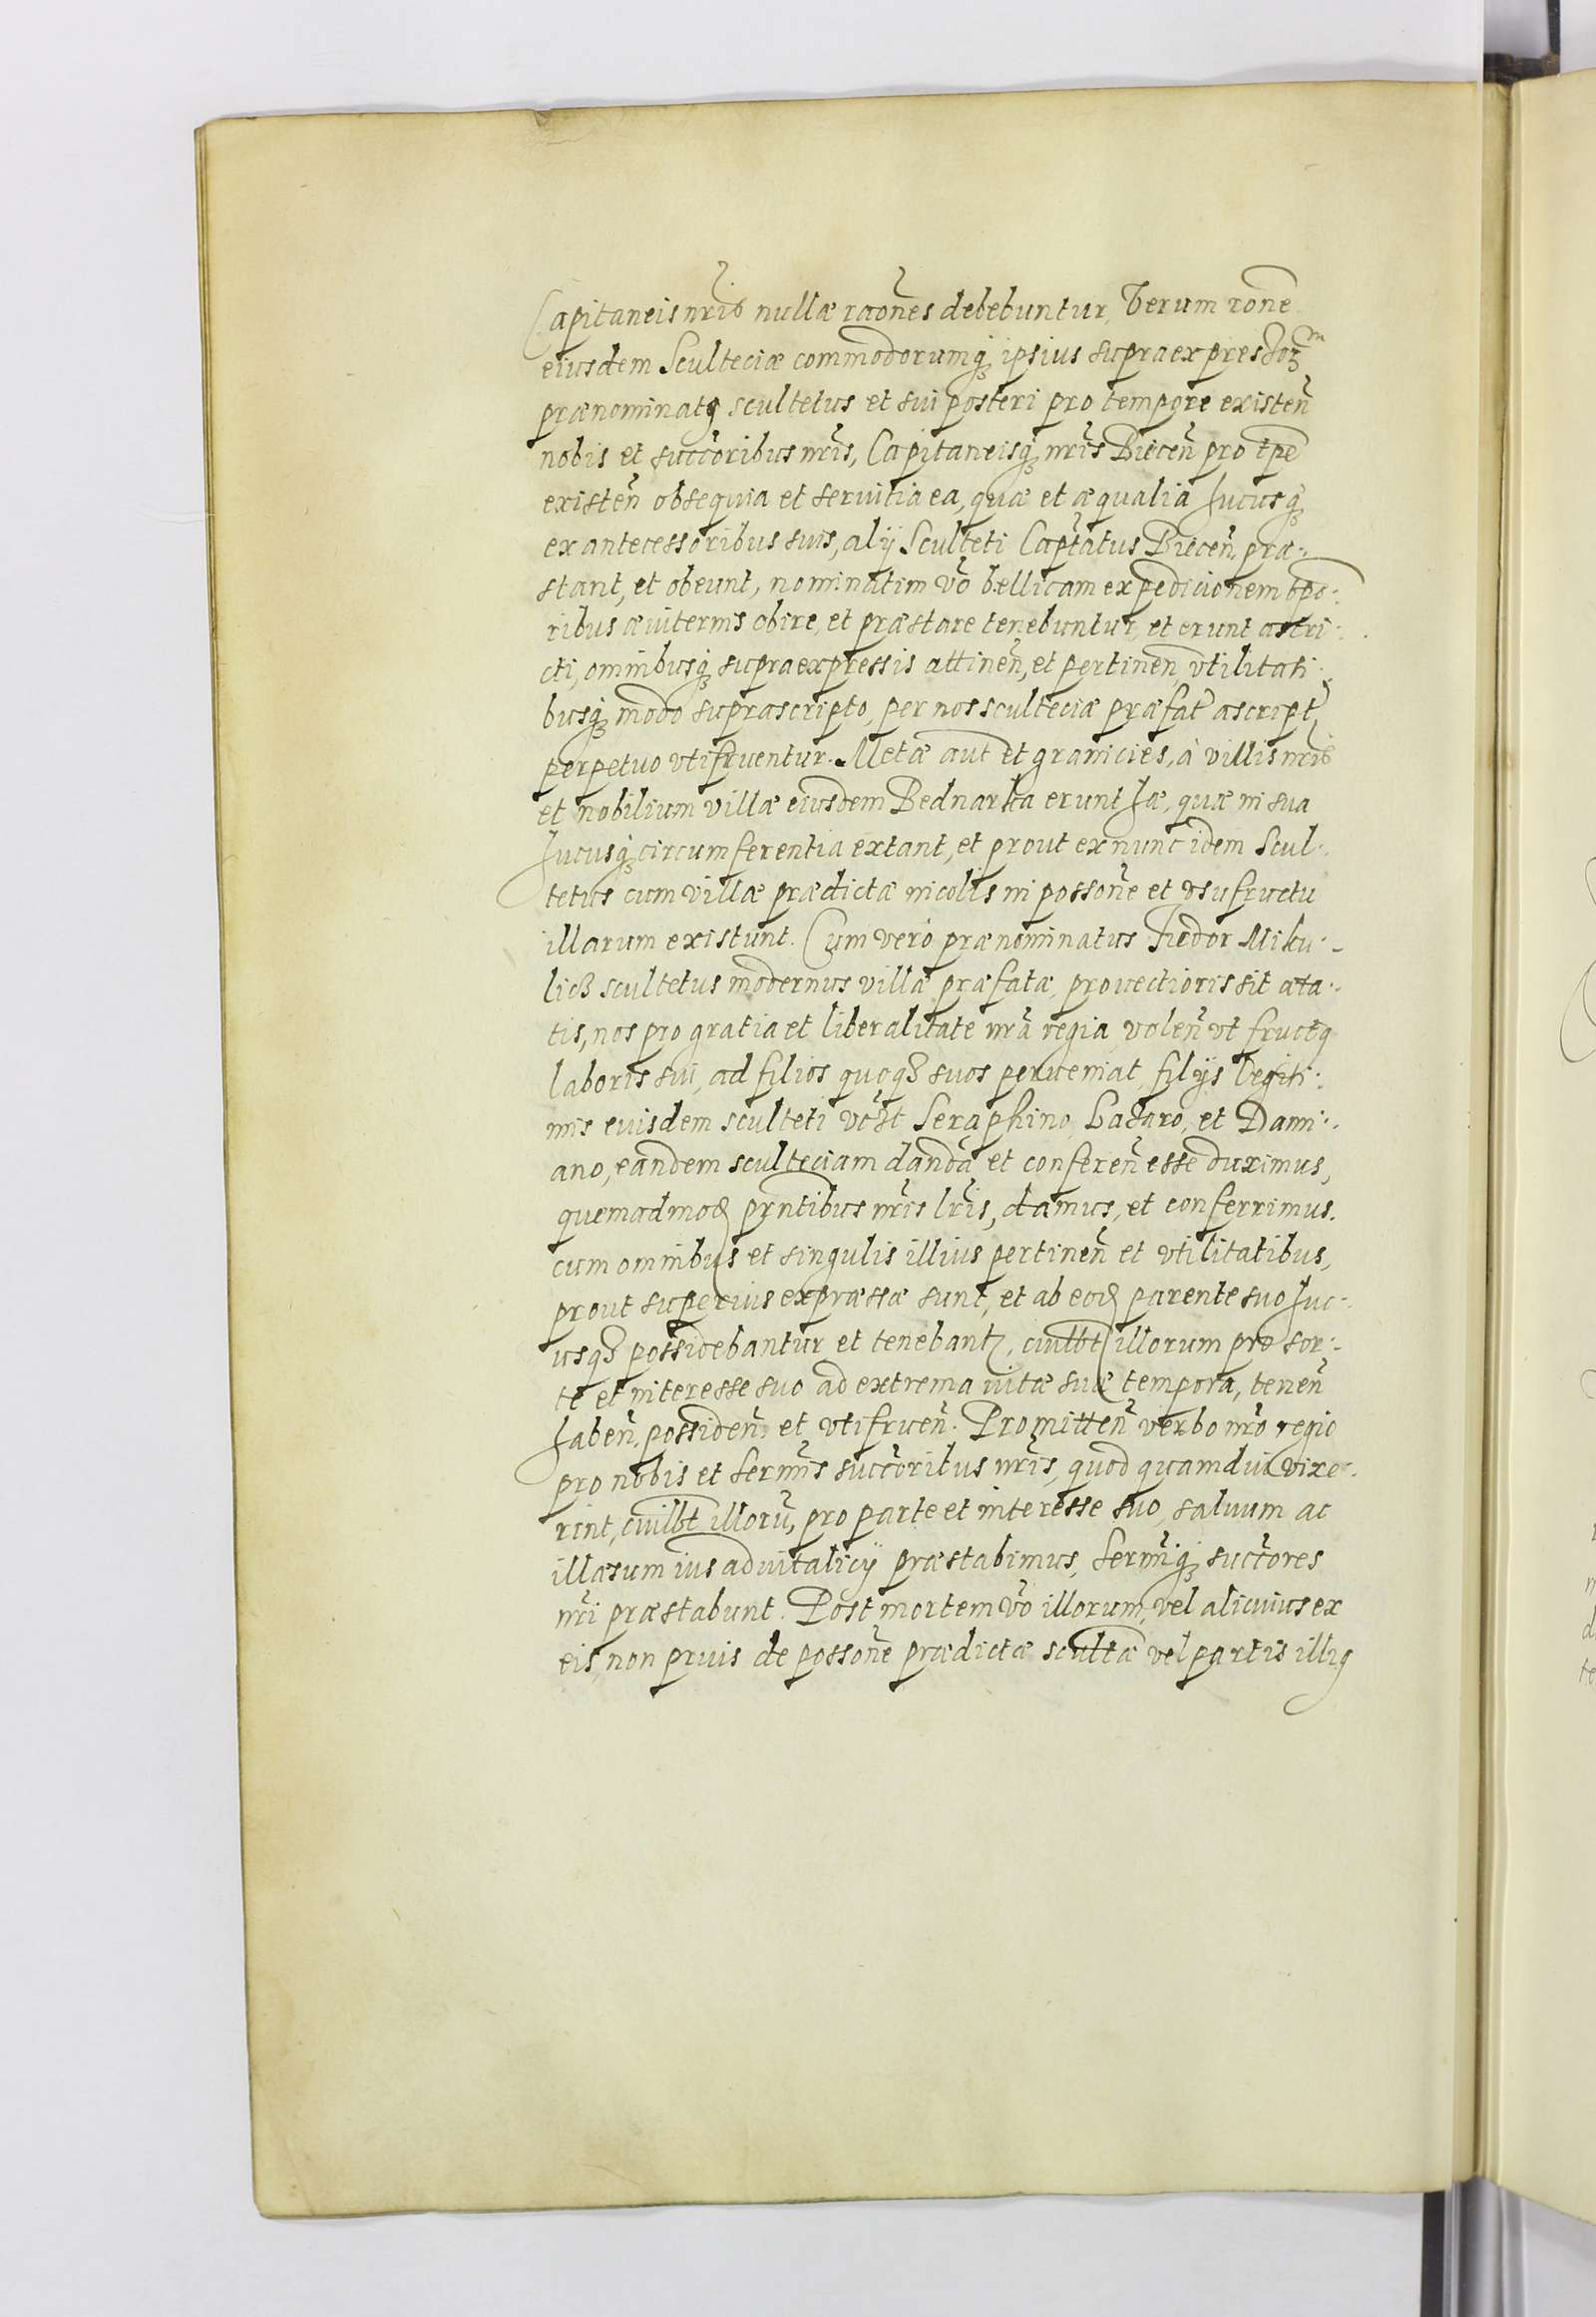 Capitaneis nr̃is nullæ raoñes debebuntur, Verum rone
eiusdem Sculteciæ commodorumqʒ ipsius supraexpressoꝝ
prænominatꝯ scultetus et sui posteri pro tempore existeñ
nobis et succõribus nr̃is, Capitaneisqʒ nr̃is Bieceñ pro tp̃e
existeñ obsequia et seruitia ea, quæ et æqualia hucusqʒ
ex antecessoribus suis, alÿ Sculteti Cap̃tatus Bieceñ. præ-
stant, et obeunt, nominatim vo͂ bellicam expedicionem tpo-
ribus æuiternis obire, et præstare tenebuntur, et erunt astri-
cti, omnibusqʒ supraexpressis attineñ, et pertineñ, vtilitati-
busqʒ modo suprascripto, per nos sculteciæ præfat̃ ascript̃,
perpetuo vtifruentur. Metæ aut̃ et granicies, à villis nr̃is
et nobilium villæ eiusdem Bednarka erunt hæ, quæ in sua
hucusqʒ circumferentia extant, et prout ex nunc idem Scul-
tetus cum villæ prædictæ incolis in possoñe et vsufructu
illarum existunt. Cum vero prænominatus Fiedor Miku-
licz scultetus modernus villæ præfatæ, prouectioris sit æta-
tis, nos pro gratia et liberalitate nr̃a regia, voleñ vt fructꝯ
laboris sui, ad filios quoqʒ suos perueniat, filÿs legiti-
mis eiusdem sculteti vc̃zt Seraphino, Lazaro, et Dami-
ano, eandem sculteciam dandã et confereñ esse duximus,
quemadmodꝫ pñtibus nr̃is lr̃is, damus, et conferrimus.
cum omnibus et singulis illius pertineñ et vtilitatibus,
prout superius expræssæ sunt, et ab eodꝫ parente suo huc-
usqʒ possidebantur et tenebantꝫ, cuilbt illorum pro sor-
te et interesse suo ad extrema vitæ suæ tempora, teneñ
habeñ. possideñ. et vtifrueñ. Promitteñ verbo nr̃o regio
pro nobis et Serm̃is succõribus nr̃is, quod quamdiu vixe-
rint, cuilbt illorũ, pro parte et interesse suo, saluum ac
illæsum ius aduitalicÿ præstabimus, Serm̃iqʒ succõres
nr̃i præstabunt. Post mortem vo͂ illorum, vel alicuius ex
eis, non prius de possoñe prædictæ scultæ vel partis illiꝯ